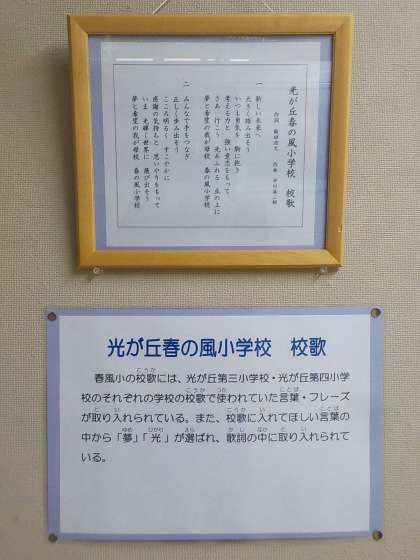 光が丘春の風小学校　校歌
一
新しい未来へ
大きく踏み出そう
いつも勇気を　胸に抱き
考える力と　強い意志をもって
さあ　行こう　光あふれる　丘の上に
夢と希望の我が母校　春の風小学校
二
みんなで手をつなぎ
正しく歩み出そう
こころ明るく　すこやかに
感謝の気持ちと　思いやりをもって
いま　光輝く世界に　飛び出そう
夢と希望の我が母校　春の風小学校
光が丘春の風小学校　校歌
春風小の校歌には、光が丘第三小学校・光が丘第四小学
校のそれぞれの学校の校歌で使われていた言葉・フレーズ
が取り入れられている。また、校歌に入れてほしい言葉の
中から「夢」「光」が選ばれ、歌詞の中に取り入れられて
いる。